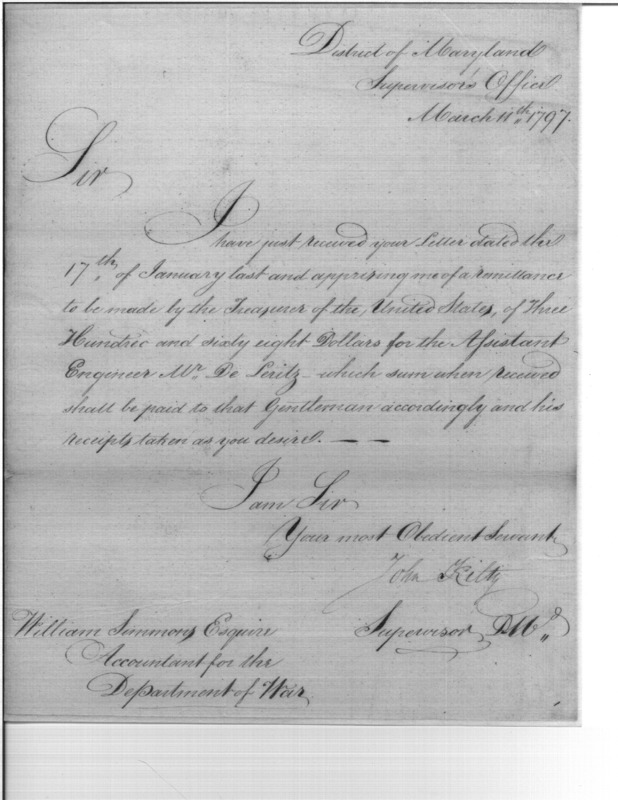 District of Maryland
Supervisor's Office
March 11th 1797.
Sir
I
have just received your Letter dated the
17th of January last and apprizing me of a remittance
to be made by the Treasurer of the United States, of Three
Hundred and sixty eight Dollars for the Assistant
Engineer Mr. De which sum when received
shall be paid to that Gentleman accordingly and his
receipts taken as you desire. — —
I am Sir
Your most Obedient Servant
John Kilty
Supervisor, D. Md.
William Simmons Esquire
Accountant for the
Department of War